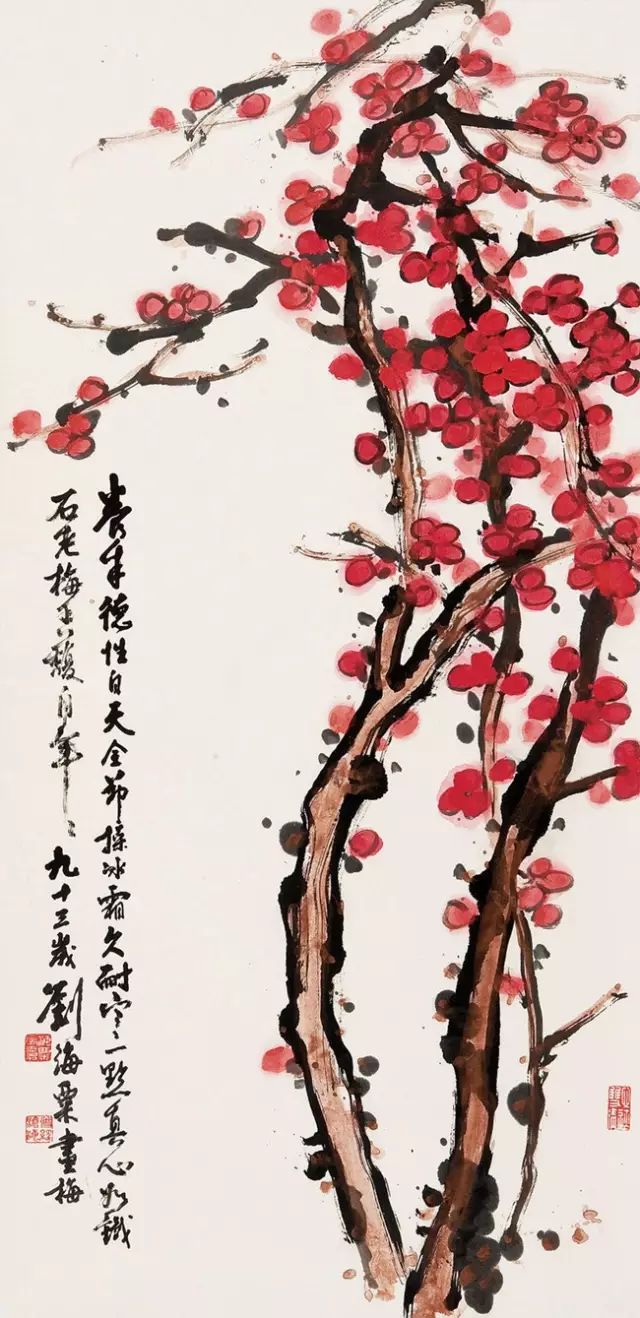 養德性自天全節操冰霜久耐寒一點真心如鐵
石老梅香馥自年〻九十三歲劉海粟畫梅